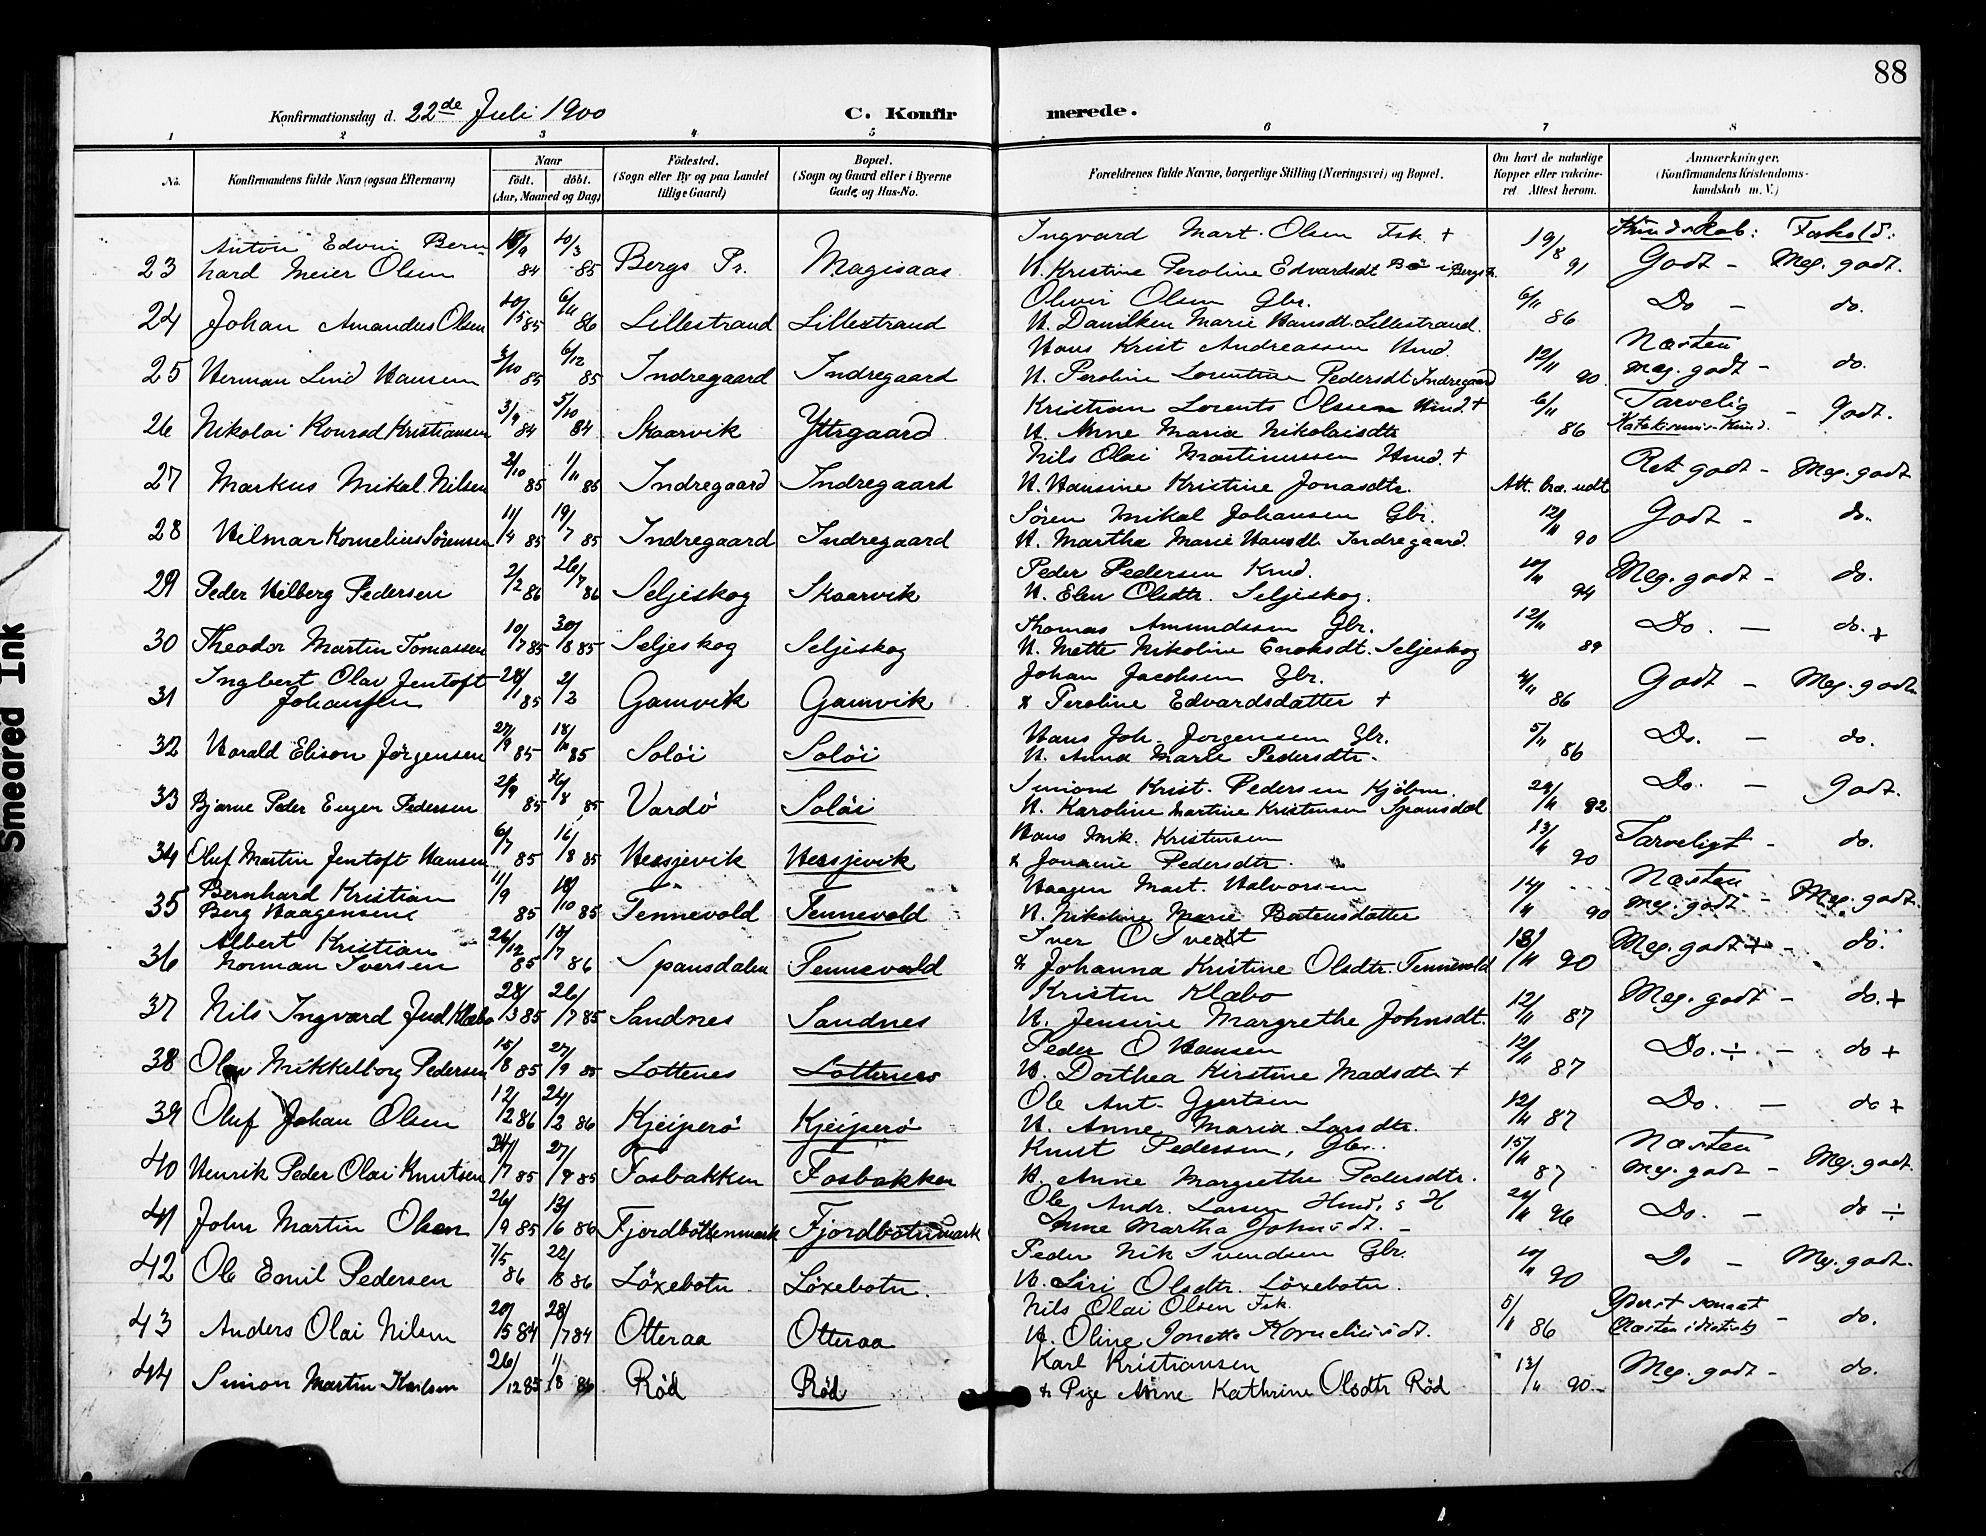 88
Konfirmationsdag d. 22de Juli 1900 C. Konfirmerede.
1 2 3 4 5 6 7 8
No. Konfirmandens fulde Navn (ogsaa Efternavn) Naar födt. döbt. (Aar, Maaned og Dag) Födested. (Sogn eller By og paa Landet tillige Gaard) Bopæl. (Sogn og Gaard eller i Byerne Gade og Hus-No. Forældrenes fulde Navne, borgerlige Stilling (Næringsvei) og Bopæl. Om havt de naturlige Kopper eller vakcineret. Attest herom. Anmærkninger. (Konfirmandens Kristendomskundskab m. V.)
Kundskab: Forhold:
Anton Edvin Bern- Ingvard Mart. Olsen Fsk. +
23 hard Meier Olsen 84 10/3 85 Bergs Pr. H. Kristine Peroline Edvardsdt 19/8 91 Godt - Meg. godt.
Oliver Olsen Gbr.
24 Johan Amandus Olsen 10/5 85 6/11 86 Lillestrand Lillestrand H. Danilken Marie Hansdt. Lillestrand. 6/11 86 Do - do.
Hans Krist Andreassen Hmd.
25 Herman Lind Hansen 3/10 85 6/12 85 Indregaard Indregaard H. Peroline Lorentine Pedersdt Indregaard 12/11 90 Næsten meg. godt - do.
Kristian Lorents Olsen Hmd. +
26 Nikolai Konrad Kristiansen 3/9 84 5/10 84 Skaarvik Yttrgaard H. Anne Maria Nikolaisdtr 6/11 86 Tarvelig - Godt.
Nils Olai Martinussen Hmd. +
27 Markus Mikal Nilsen 2/10 85 1/11 85 Indregaard Indregaard H. Hansine Kristine Jonasdtr. Att. udt Ret godt - Meg. godt
Sören Mikal Johansen Gbr.
28 Hilmar Kornelius Sörensen 11/4 85 19/7 85 Indregaard Indregaard H. Martha Marie Hansdt. Indregaard 12/11 90 Godt - do.
Peder Pedersen Kmd.
29 Peder Hilberg Pedersen 2/2 86 26/7 86 Seljeskog Skaarvik H. Elen Olsdtr. Seljeskog. 10/11 94 Meg. godt - do.
Thomas Amundssen Gbr.
30 Theodor Martin Tomassen 10/7 85 30/8 85 Seljeskog Seljeskog H. Mette Nikoline Enoksdt. Seljeskog 12/11 89 Do. - do. +
Ingbert Olav Jentoft Johan Jacobsen Gbr.
31 Johansen 28/1 85 2/2 Gamvik Gamvik Peroline Edvardsdatter + 86 Godt - Meg. godt
Hans Joh. Jörgensen Gbr.
32 Harald Elison Jörgensen 27/9 85 18/10 85 Solöi Solöi H. Anna Marie Pedersdtr. 5/11 86 Do. - do.
Simon Krist. Pedersen Kjöbm.
33 Bjarne Peder Eugen Pedersen 85 85 Vardö Solöi H. Karoline Martine Kristensen Spansdal 82 Do. - Godt.
Hans Mik. Kristensen
34 Oluf Martin Jentoft Hansen 6/7 85 16/8 85 Hessjevik Hessjevik Jonanie Pedersdtr. 90 Tarveligt - do.
Bernhard Kristian Haagen Mart. Halvorsen
35 Berg Haagensene 11/9 85 18/10 85 Tennevold Tennevold H. Nikoline Marie Berteusdatter 14/11 90 Næsten meg. godt - Meg. godt.
Albert Kristian Iver O Tveit
36 Norman Iversen 26/12 85 18/7 86 Spansdalen Tennevold Johanna Kristine Olsdtr. Tennevold 90 Meg. godt - do.
Kristen Klæbo
37 Nils Ingvard Jul Klæbo 28/3 85 26/7 85 Sandnes Sandnes H. Jensine Margrethe Johnsdt. 12/11 87 Meg. godt - do. +
Peder O Hansen
38 Olav Mikkelborg Pedersen 15/8 85 27/9 85 Lottenes Lottenes H. Dorthea Kirstine Madsdtr + 12/11 87 Do. ÷ - do +
Ole Ant. Gjertsen
39 Oluf Johan Olsen 12/2 86 24/2 86 Kjeiperö Kjeiperö H. Anne Maria Larsdtr. 12/11 87 Do. - do +
Knut Pedersen, Gbr.
40 Henrik Peder Olai Knutsen 24/7 85 27/9 85 Fosbakken Fosbakken H. Anne Margrethe Pedersdtr. 15/11 87 Næsten meg. godt - Meg. godt.
Ole Andr. Larsen Hmd.
41 John Martin Olsen 26/9 85 13/6 86 Fjordbottenmark Fjordbotnmark Anne Martha Johnsdt. - 96 Do. - do ÷
Peder Nik Svendsen Gbr.
42 Ole Emil Pedersen 7/5 86 22/8 86 Löxebotn Löxebotn. H. Siri Olsdtr. Löxebotn. 10/11 90 Do - Meg. godt.
Nils Olai Olsen Fsk.
43 Anders Olai Nilsen 20/5 84 28/7 84 Otteraa Otteraa H. Oline Jonette Korneliusdt. 5/11 86 - do.
Karl Kristiansen
44 Simon Martin Karlsen 26/12 85 1/8 86 Röd Röd Pige Anne Kathrine Olsdtr Röd 13/11 90 Meg. godt - do.
Smeared Ink